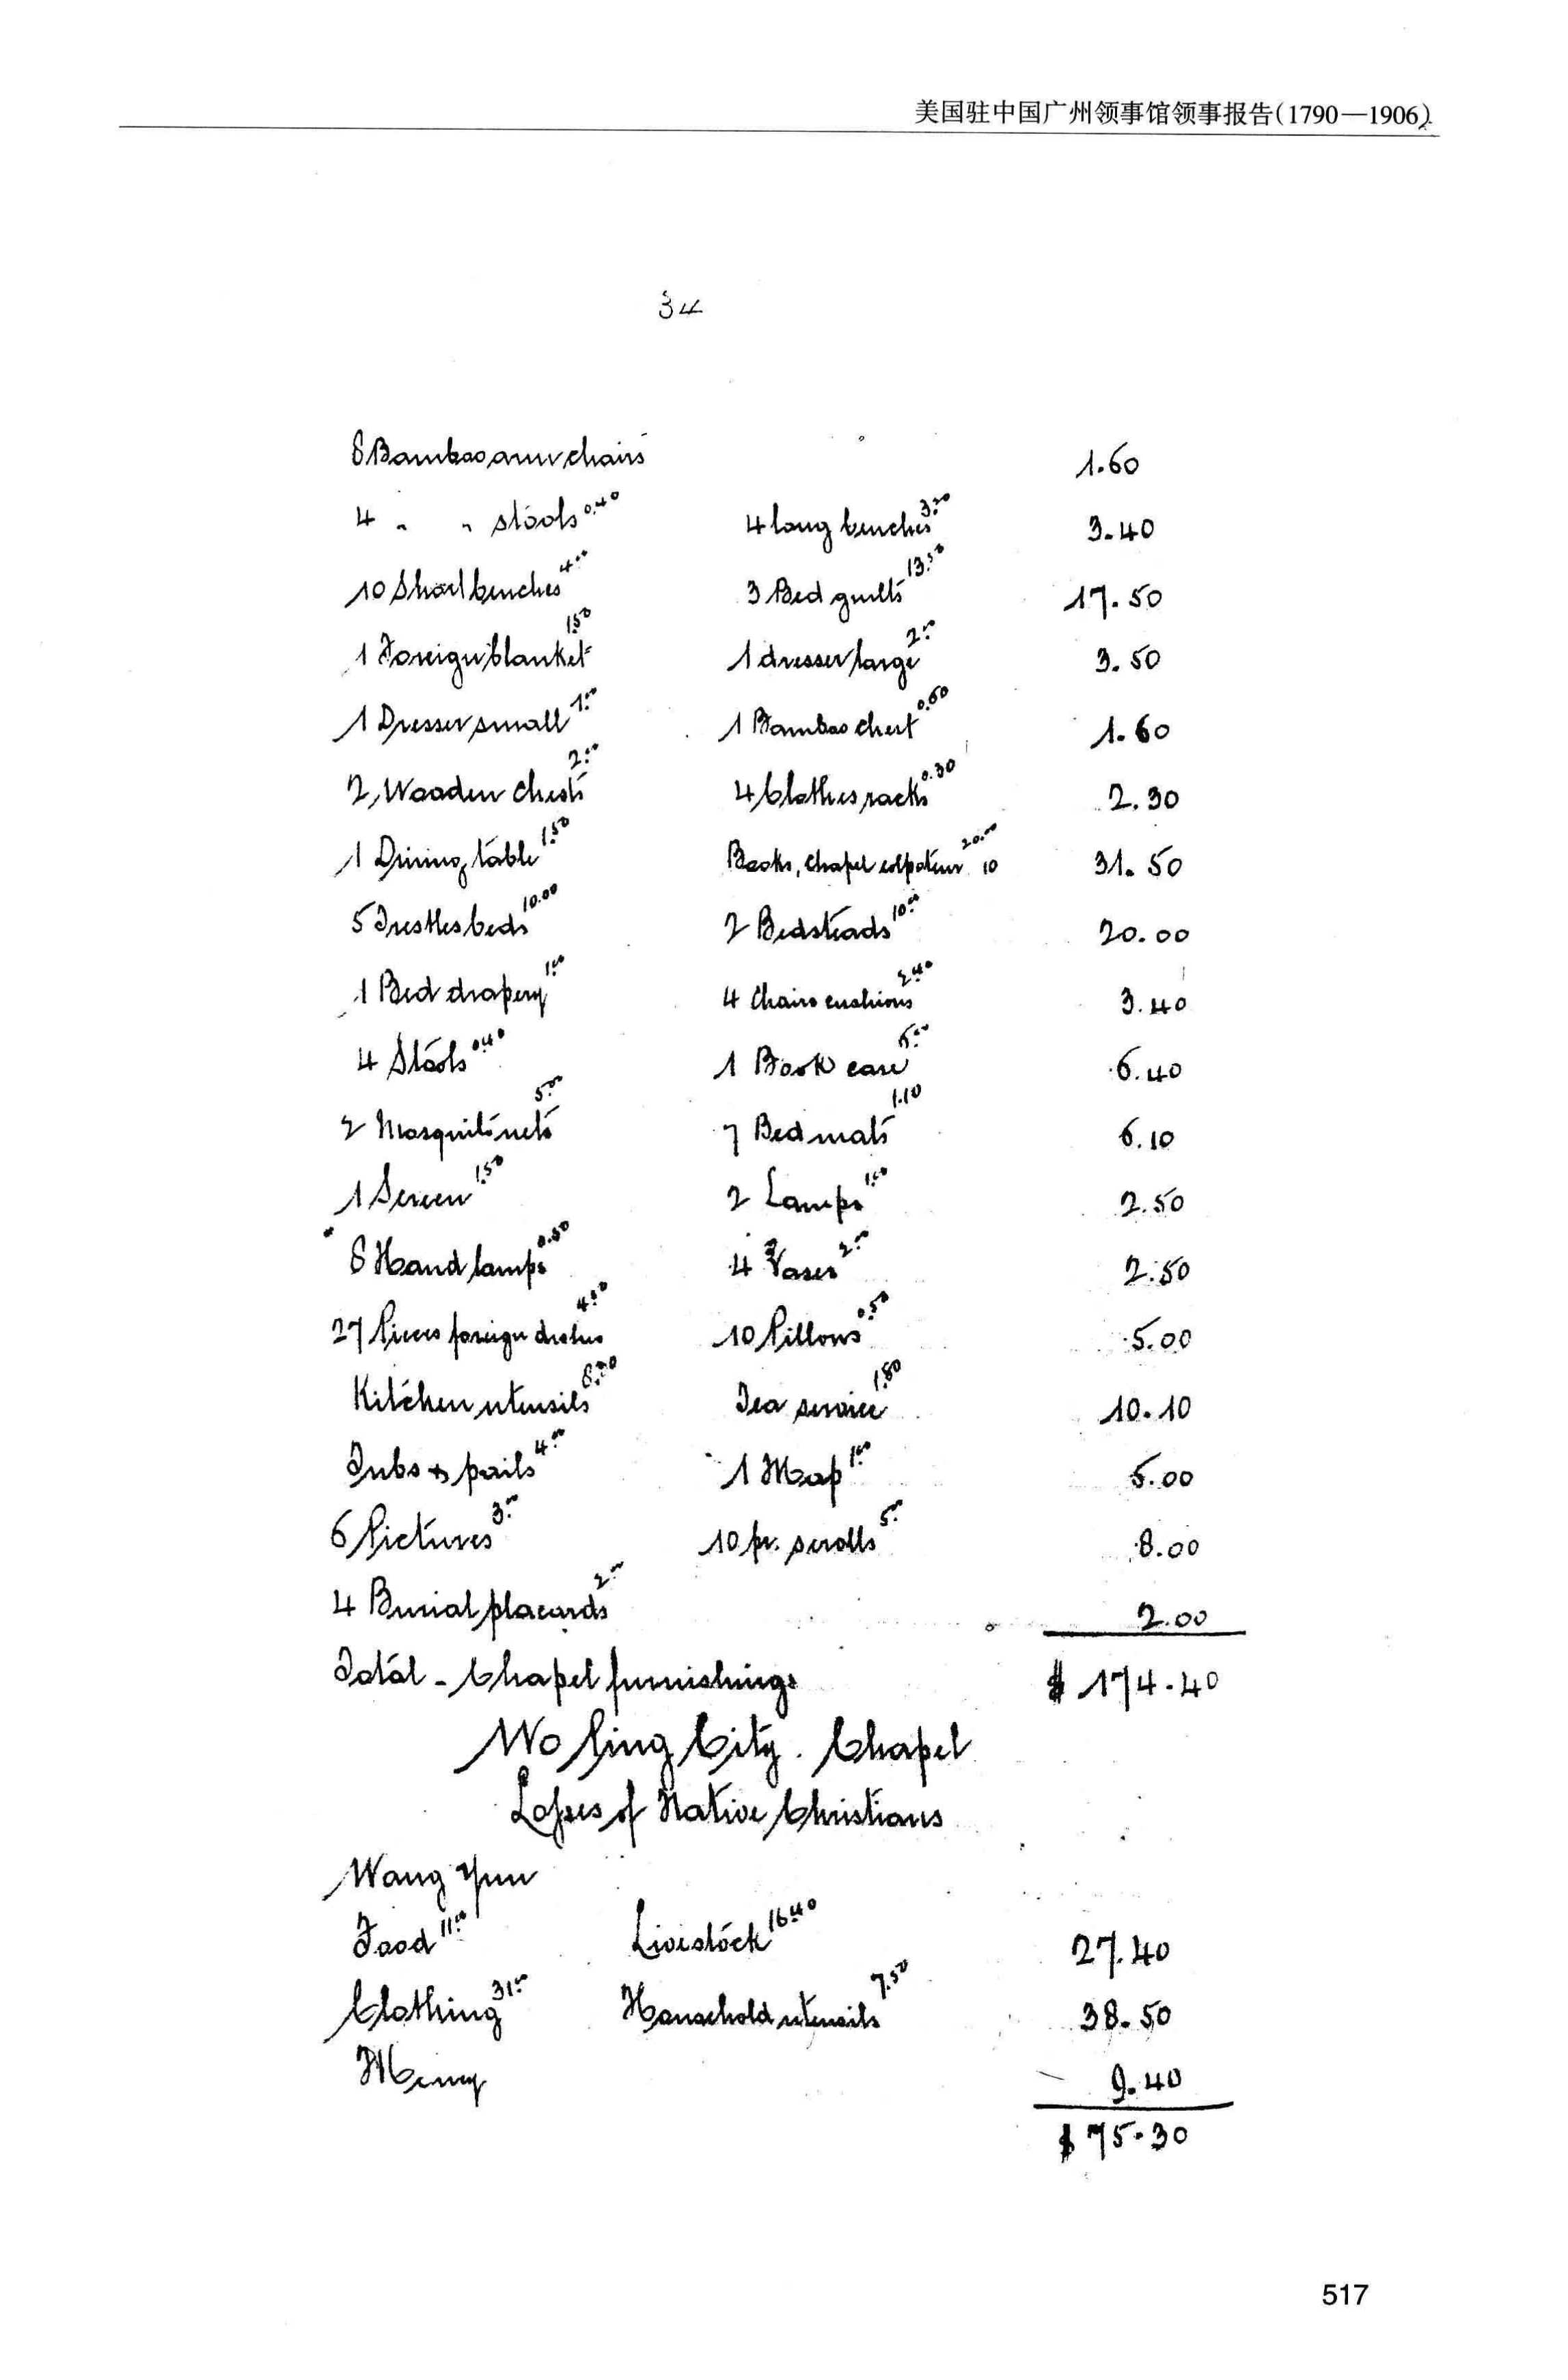 美国驻中国广州领事馆领事报告(1790—1906)
34
8 Bamboo arm chairs 1.60
4 " " stools 0.40 4 long benches 3.00 3.40
10 Short benches 4.00 3 Bed quilts 13.50 17.50
1 Foreign blanket 1.50 1 dresser large 2.00 3.50
1 Dresser small 1.00 1 Bamboo chest 0.60 1.60
2 Wooden chests 2.00 4 Clothes racks 0.30 2.30
1 Dining table 1.50 Books, Chapel colpoteur 20.00 10 31.50
5 Trestles beds 10.00 2 Bedsteads 10.00 20.00
1 Bed drapery 1.00 4 Chairs cushions 2.40 3.40
4 Stools 0.40 1 Book case 6.00 6.40
2 Mosquito nets 5.00 7 Bed mats 1.10 6.10
1 Screen 1.50 2 Lamps 1.00 2.50
8 Hand lamps 0.50 4 Vases 2.00 2.50
27 Pieces foreign dishes 4.50 10 Pillows 0.50 5.00
Kitchen utensils 8.30 Tea service 1.80 10.10
Tubs & pails 4.00 1 Map 1.00 5.00
6 Pictures 3.00 10 pr. scrolls 5.00 8.00
4 Burial placards 2.00 2.00
Total - Chapel furnishings $ 174.40
Wo Ping City. Chapel
Losses of Native Christians
Wang Yun
Food 11.00 Livestock 16.40 27.40
Clothing 31.00 Household utensils 7.50 38.50
Money 9.40
$ 75.30
517